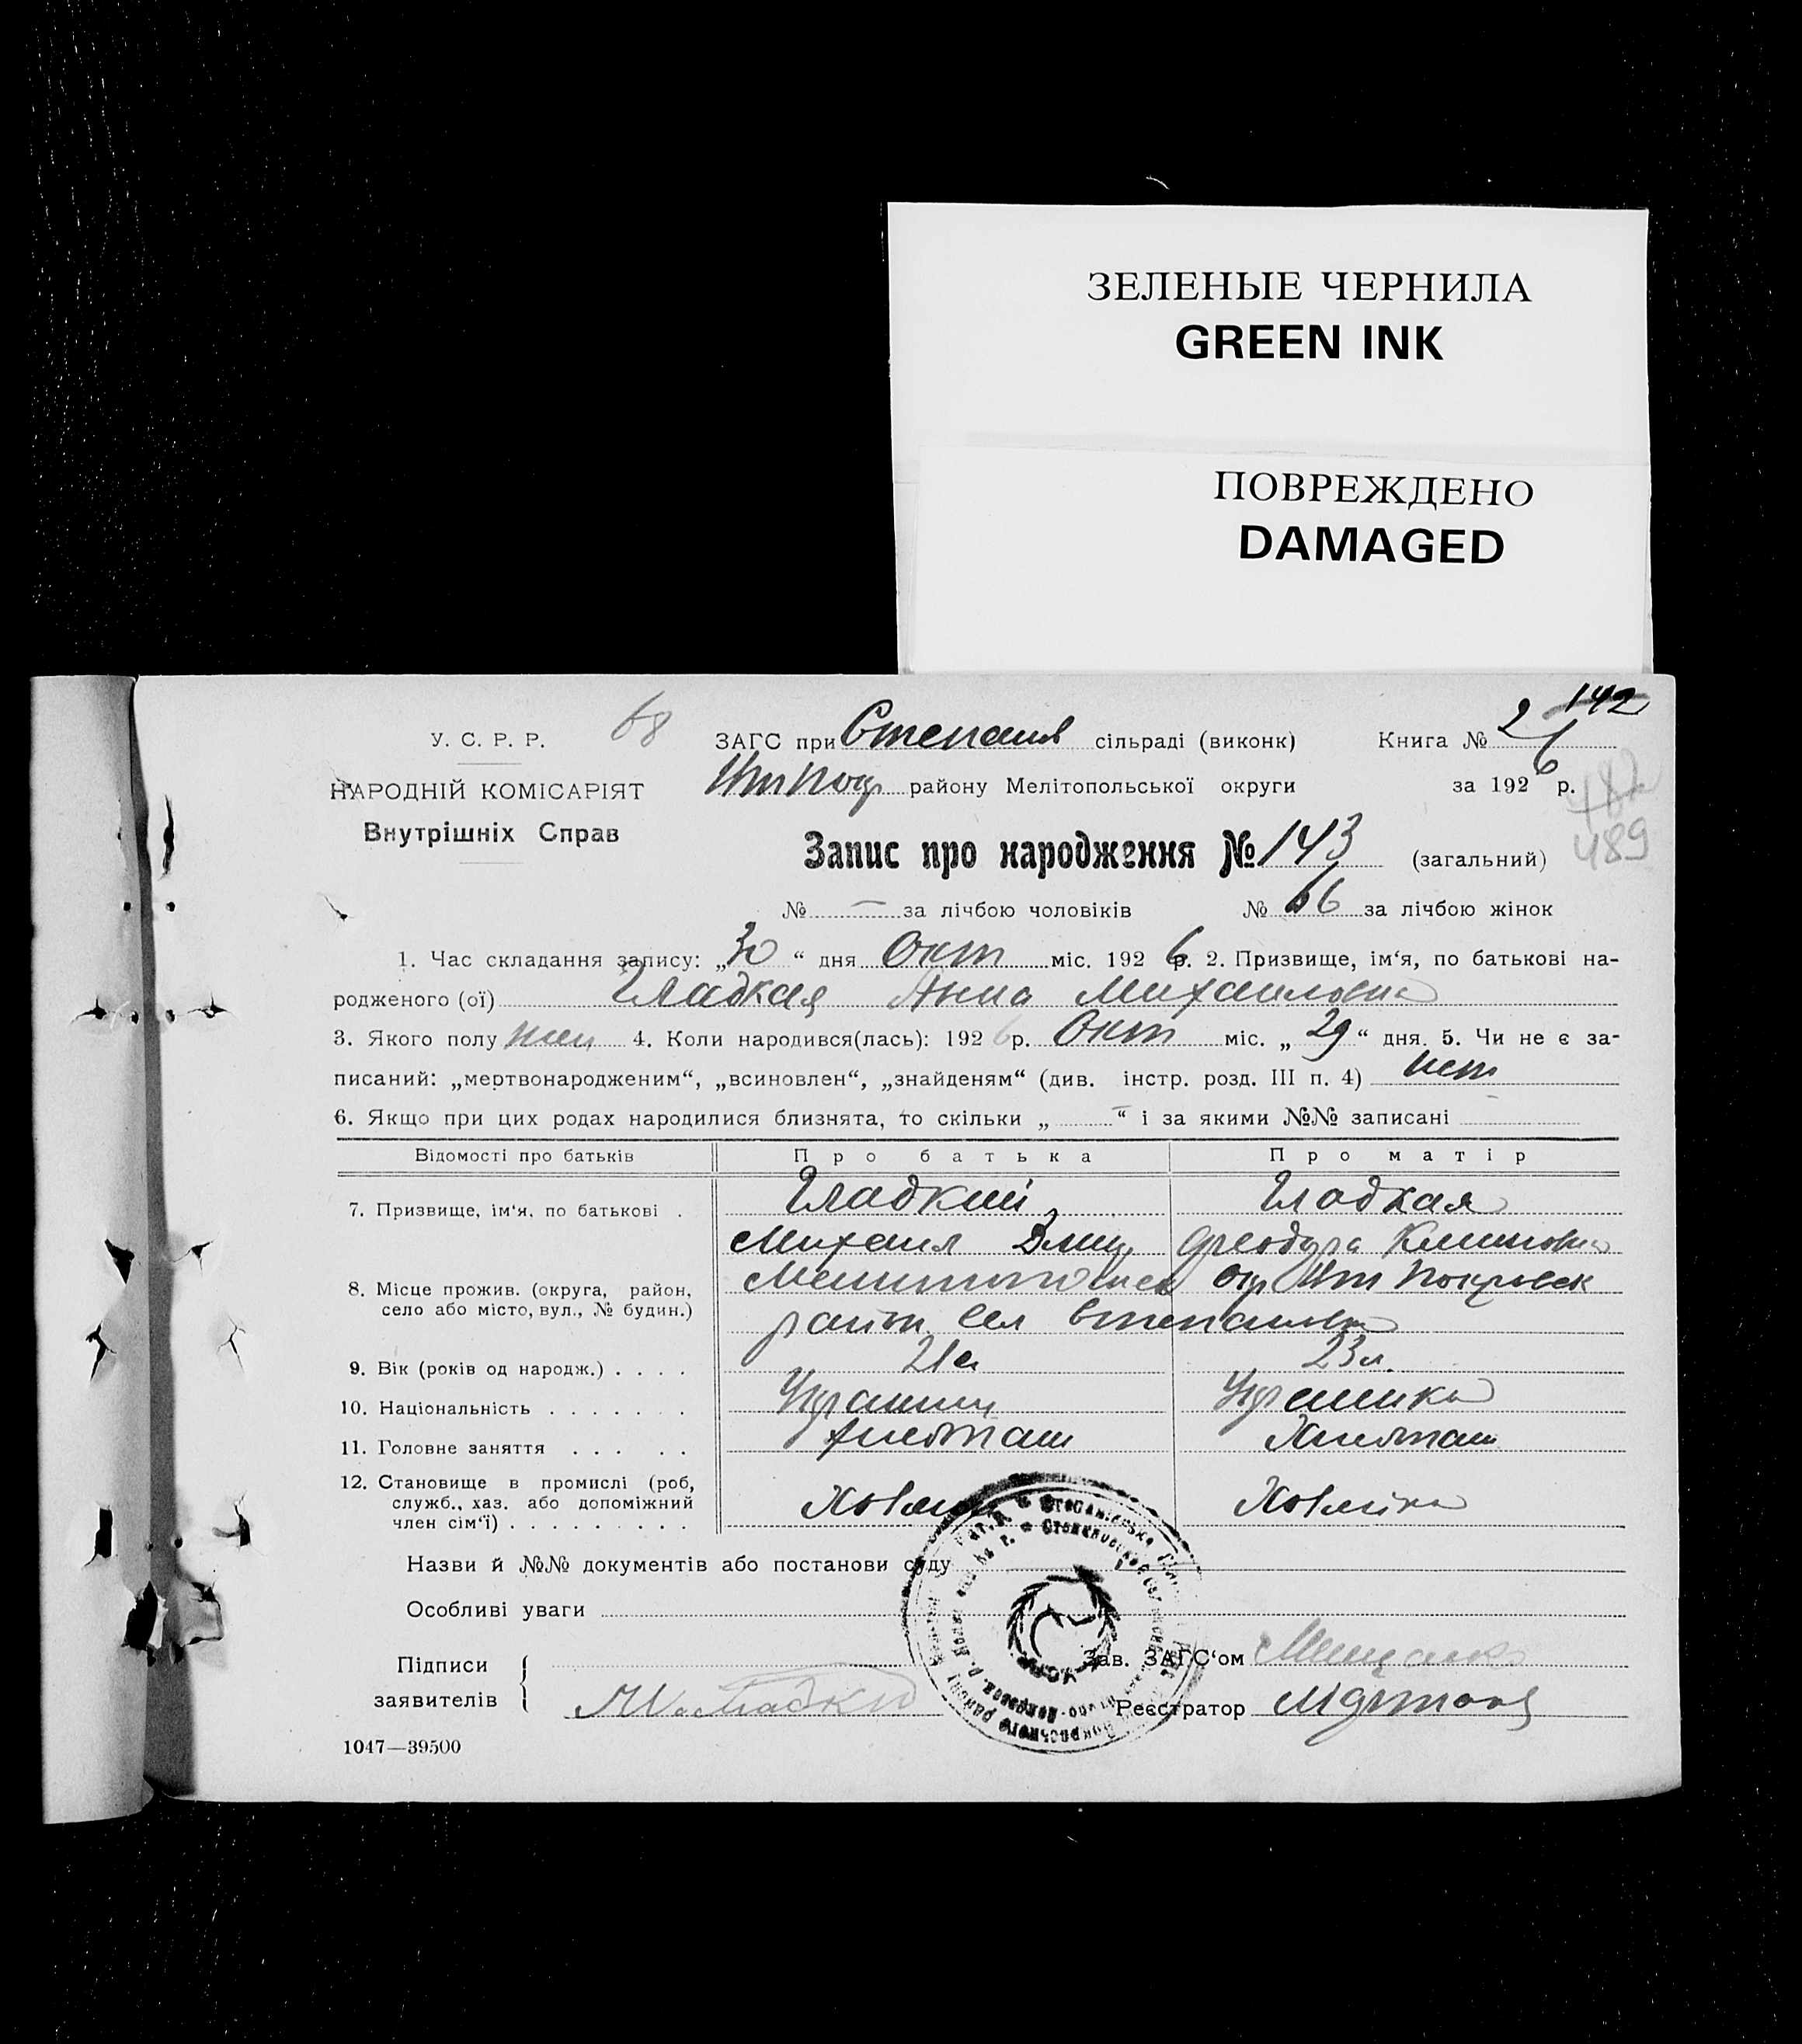 ЗЕЛЕНЫЕ ЧЕРНИЛА
GREEN INK
ПОВРЕЖДЕНО
DAMAGED
142
У. С. Р. Р. 68 ЗАГС при Степанів сільраді (виконк) Книга № 2
НАРОДНІЙ КОМІСАРІЯТ району Мелітопольської округи за 1926 р.
Внутрішніх Справ
Запис про народження № 143 (загальний) 489
№ — за лічбою чоловіків № 66 за лічбою жінок
1. Час складання запису: „30“ дня Окт міс. 1926 р. 2. Призвище, ім‘я, по батькові на-
родженого (ої) Гладкая Анна Михаиловна
3. Якого полу жен 4. Коли народився(лась): 1926 р. Окт міс. „29“ дня. 5. Чи не є за-
писаний: „мертвонародженим“, „всиновлен“, „знайденям“ (див. інстр. розд. III п. 4) нет
6. Якщо при цих родах народилися близнята, то скільки „ “ і за якими №№ записані
Відомості про батьків Про батька Про матір
7. Призвище, ім‘я, по батькові . Гладкий Гладкая
Михаил Дмит Феодора Климовна
8. Місце прожив. (округа, район, село або місто, вул., № будин.) окр Покровск
район сел
9. Вік (років од народж.) . . . . 21 л 23 л.
10. Національність . . . . . . . Украинец Украинка
11. Головне заняття . . . . . Хлебопаш Хлебопаш
12. Становище в промислі (роб,
служб., хаз. або допоміжний
член сім‘ї) . . . . . . . . .
Назви й №№ документів або постанови суду
Особливі уваги
Підписи Зав. ЗАГС‘ом
заявителів М. Гладкий Реєстратор
1047—39500